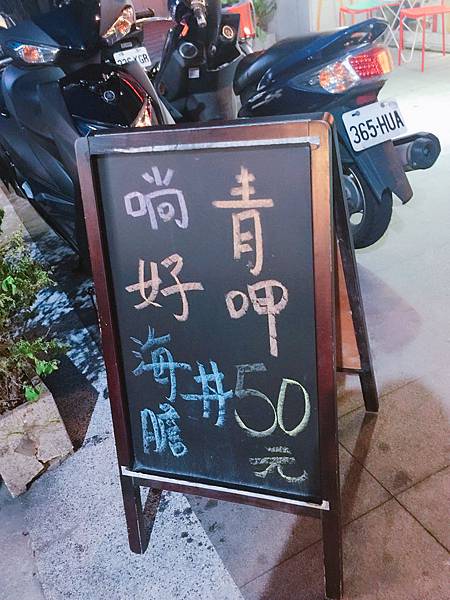 青呷
尚好
海膽丼50元
365-HUA